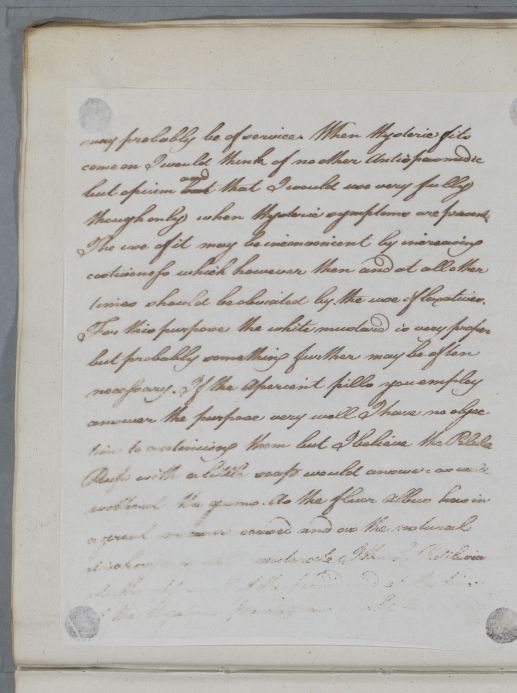 may probably be of service. When Hysteric fits
come on I would think of no other Antispasmodic
but opium and that I would use very fully
though only when Hysteric symptoms are present.
The use of it may be inconvenient by increasing
costiveness which however then and at all other
times should be obviated by the use of laxatives.
For this purpose the white mustard is very proper
but probably something further may be often
necessary. If the Aperient pills you employ
answer the purpose very well I have no objec
tion to continuing them but I believe the Pilulæ
Rufi with a little soap would answer as well
without the gums. As the fluor albus has in
a great measure ceased and as the natural
at the